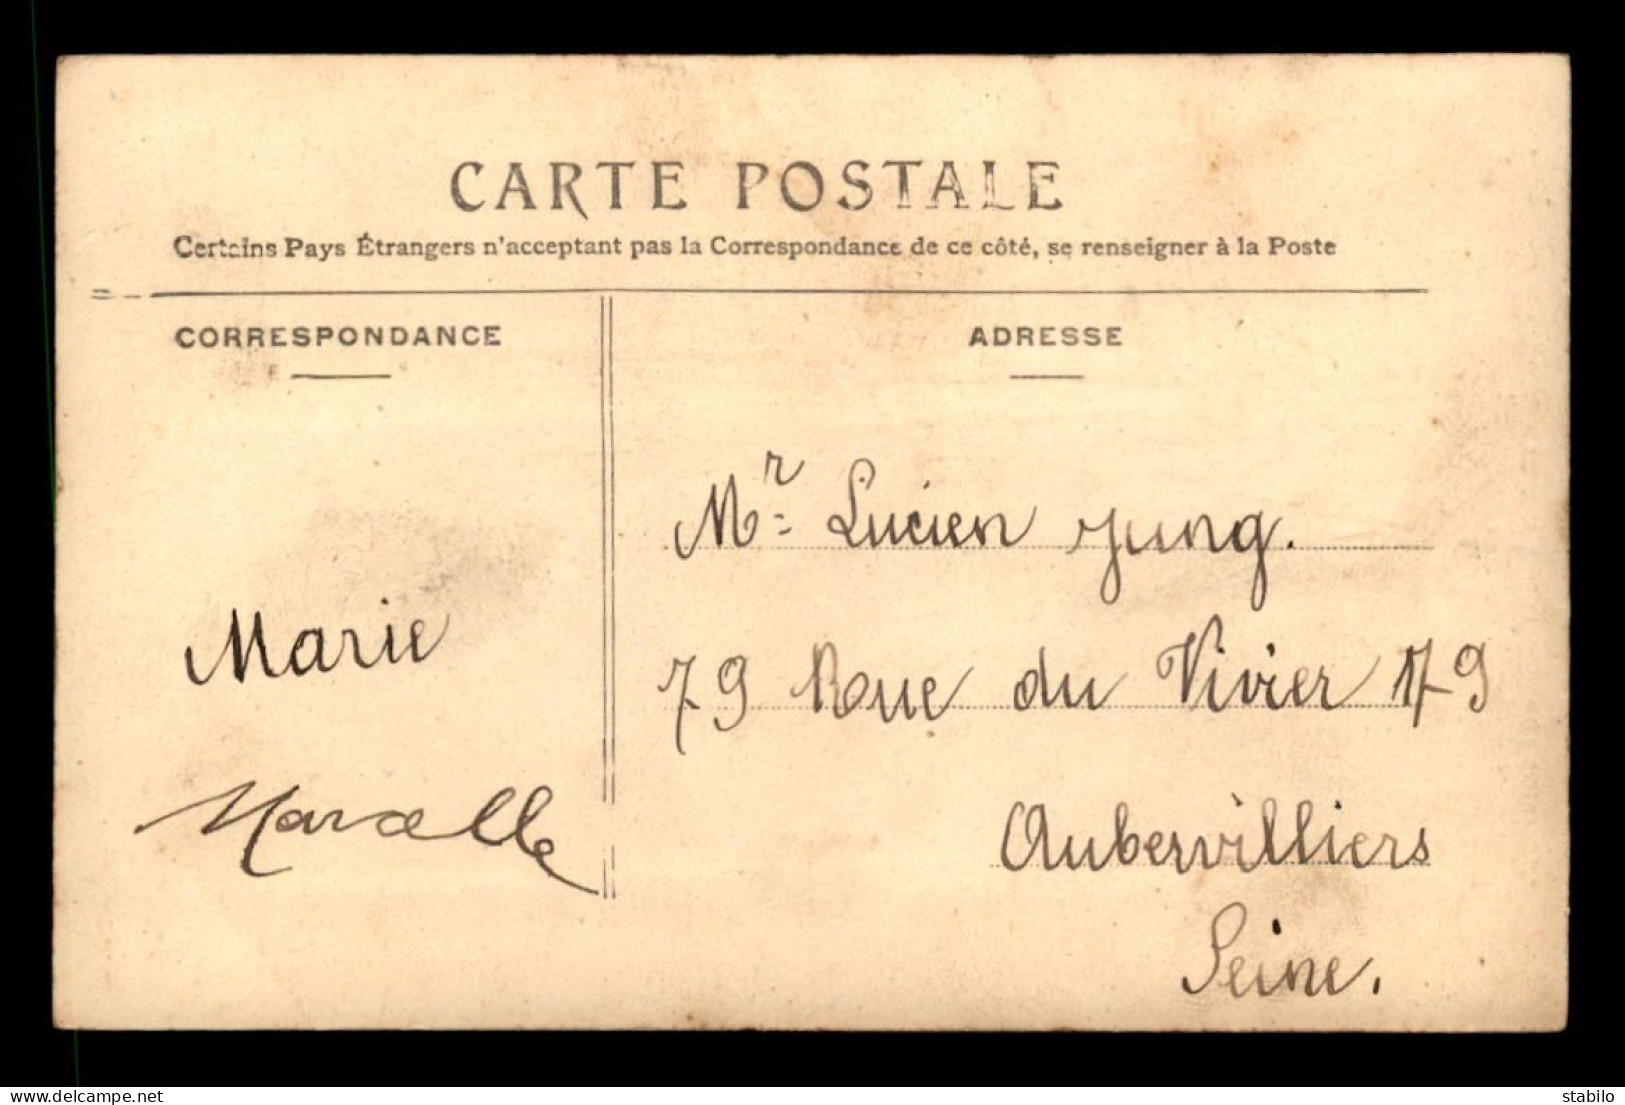 CARTE POSTALE
Certains Pays Étrangers n'acceptant pas la Correspondance de ce côté, se renseigner à la Poste
CORRESPONDANCE
ADRESSE
Marie
Marcelle
Mr Lucien Jung.
79 Rue du Vivier 79
Aubervilliers
Seine.
stabilo
www.delcampe.net